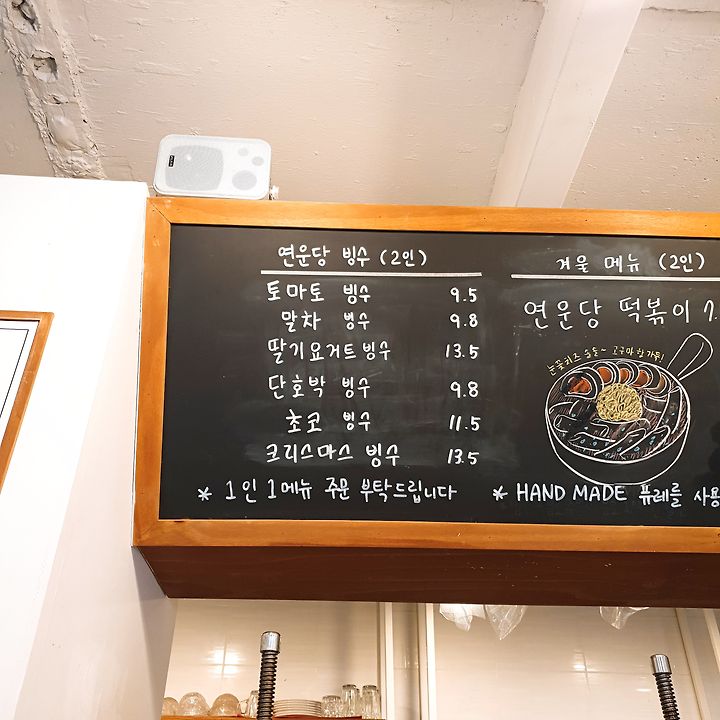 연운당 빙수 (2인)
토마토 빙수 9.5
말차 빙수 9.8
딸기요거트빙수 13.5
단호박 빙수 9.8
초코 빙수 11.5
크리스마스 빙수 13.5
* 1인 1메뉴 주문 부탁드립니다
겨울 메뉴 (2인)
연운당 떡볶이
눈꽃치즈 솔솔~ 고구마 한가득!
* HAND MADE 퓨레를 사용